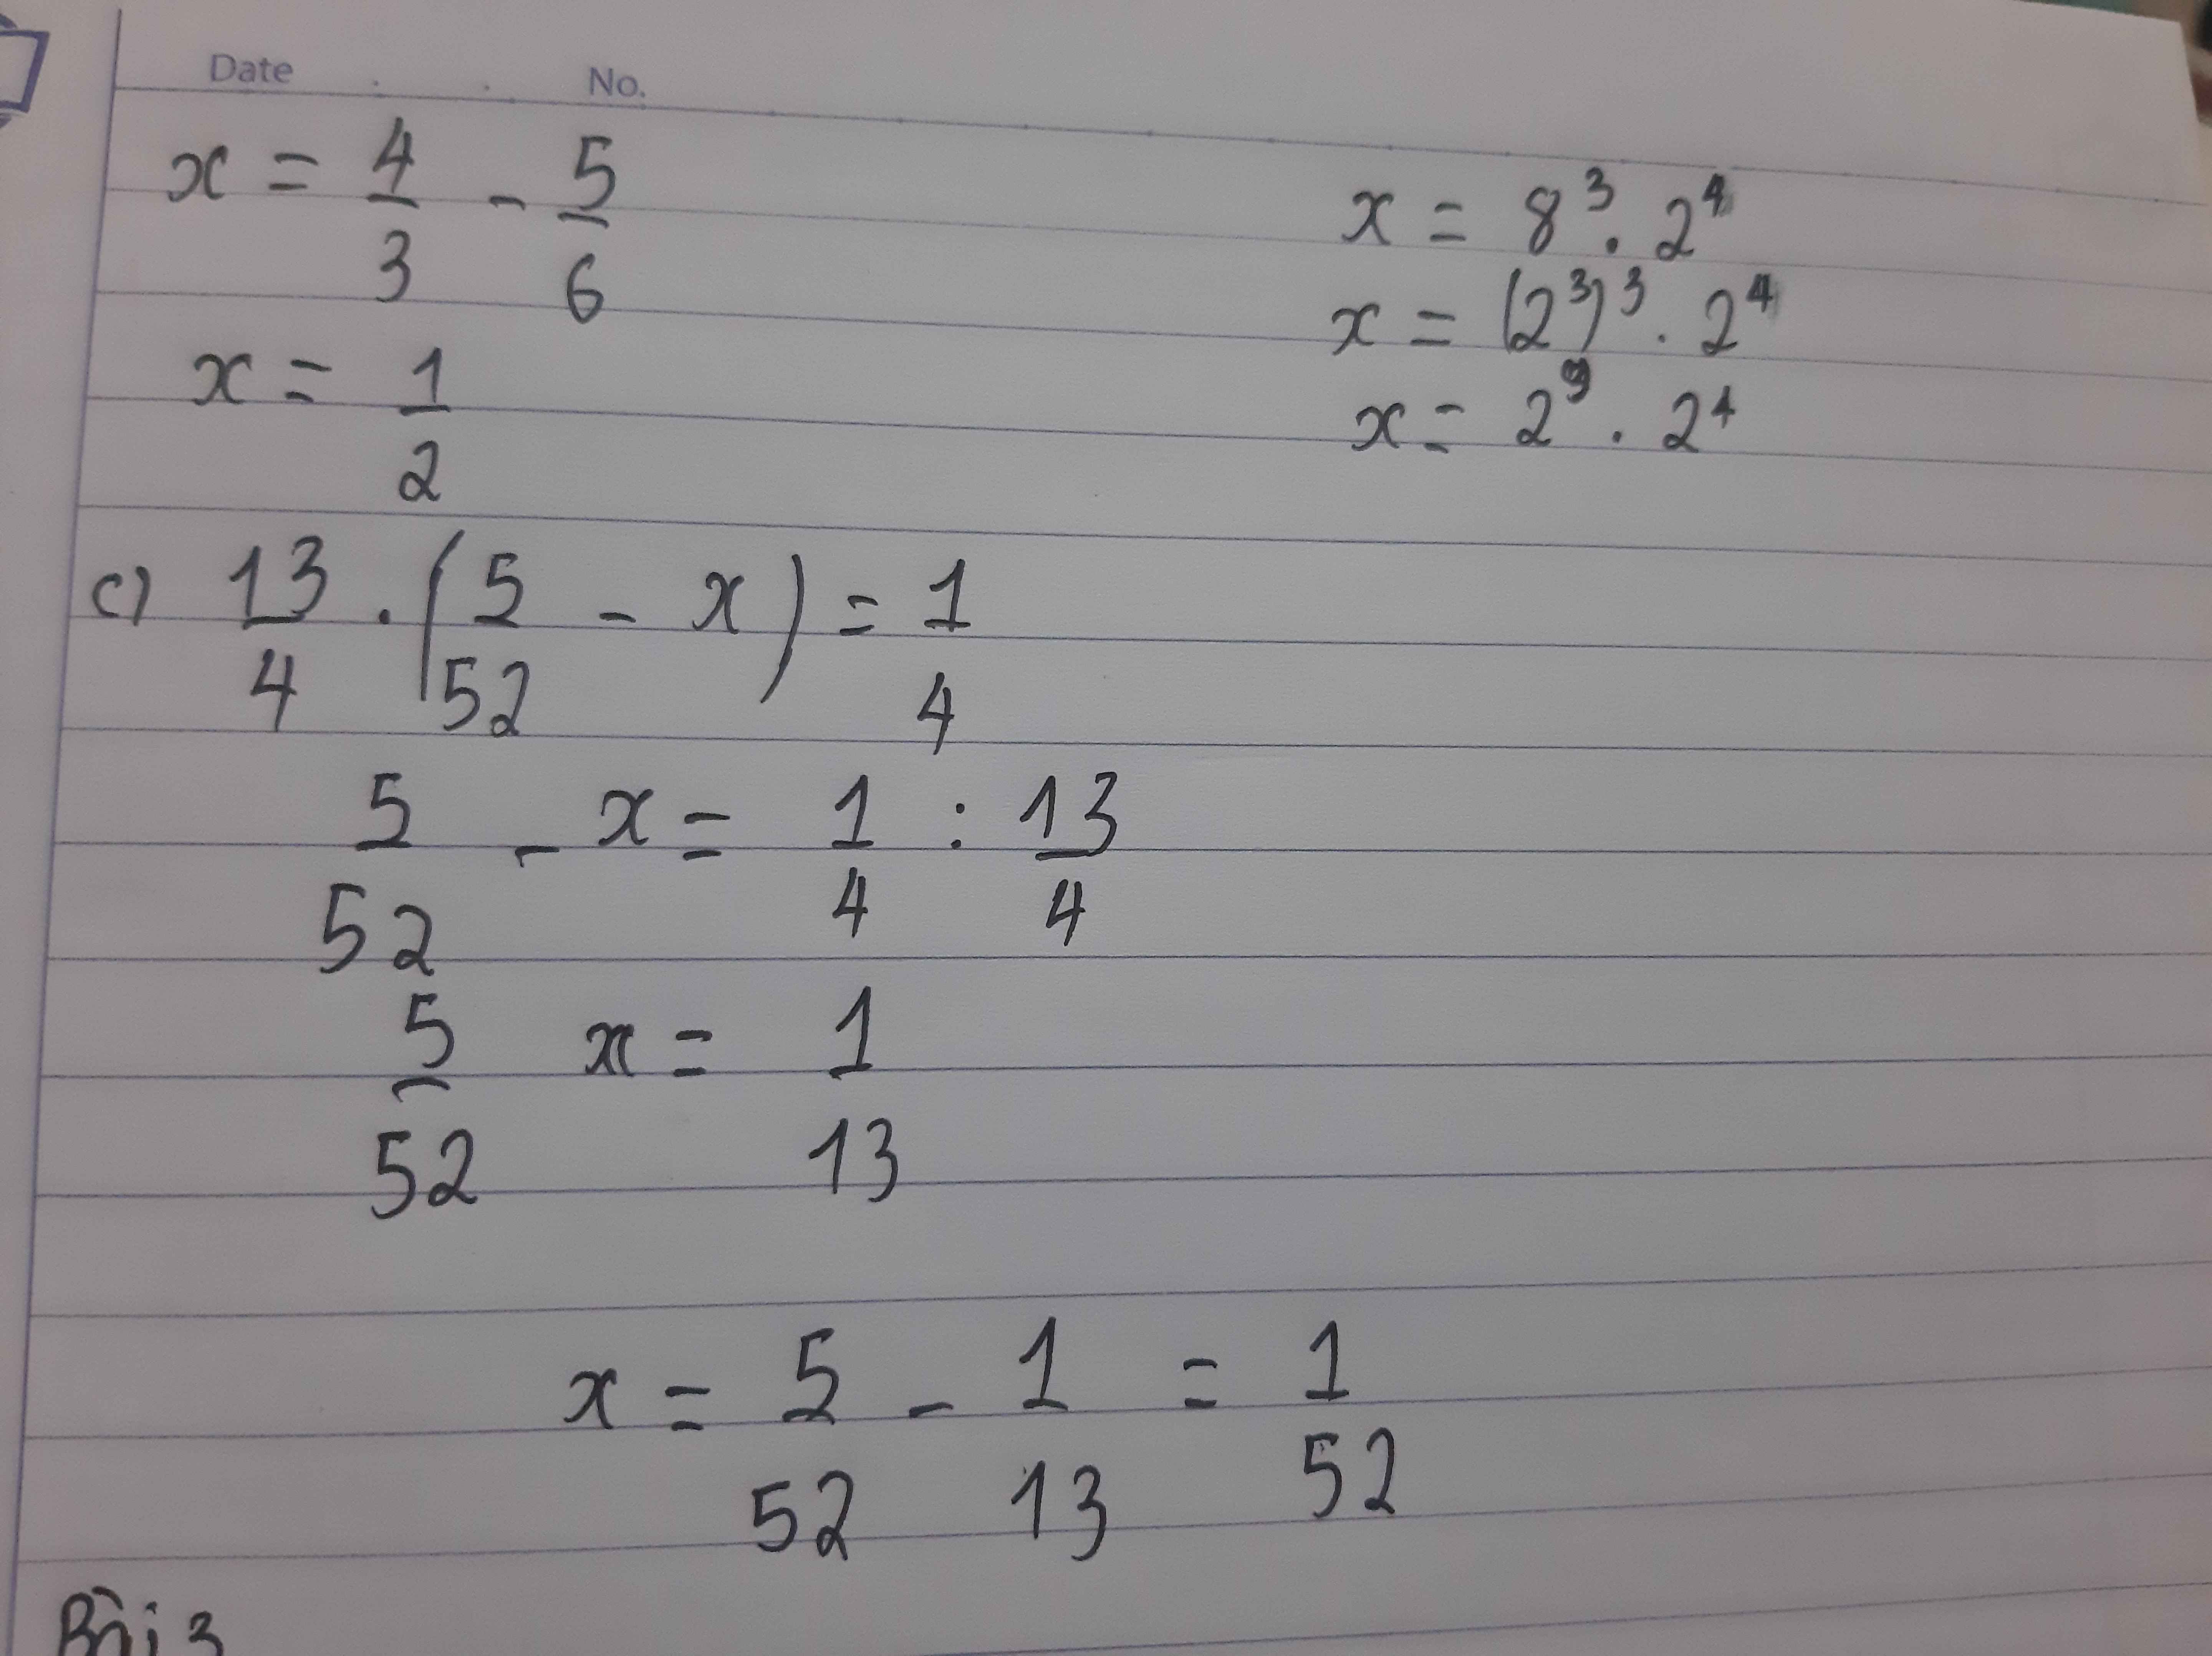 Date No.
x = 4/3 - 5/6
x = 1/2
x = 8³ . 2⁴
x = (2³)³ . 2⁴
x = 2⁹ . 2⁴
c) 13/4 . (5/52 - x) = 1/4
5/52 - x = 1/4 : 13/4
5/52 x = 1/13
x = 5/52 - 1/13 = 1/52
Bài 3